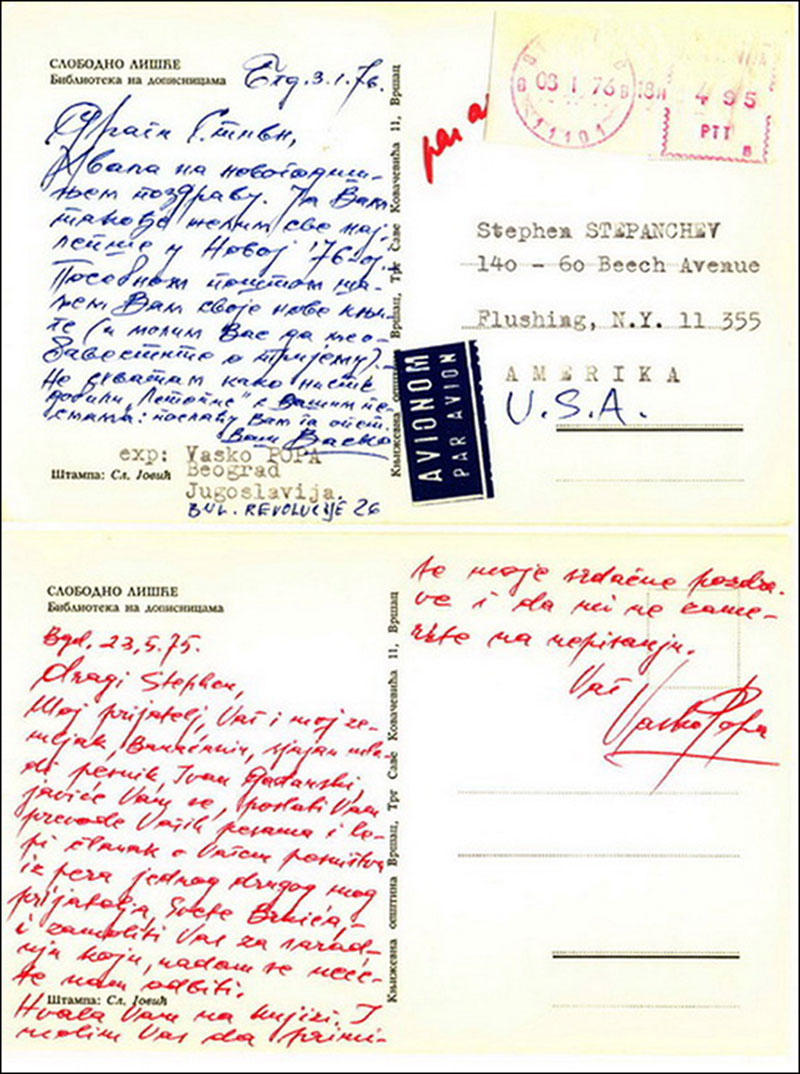 СЛОБОДНО ЛИШЋЕ
Библиотека на дописницама
Бгд. 3.1.76.
Драги Стивн,
Хвала на новогодиш-
њем поздраву. Ја Вам
такође желим све нај-
лепше у Новој '76-ој.
Посебном поштом ша-
љем Вам своје нове књи-
ге (и молим Вас да ме о-
бавестите о пријему).
Не схватам како нисте
добили „Летопис" с Вашим пе-
смама: послаћу Вам га опет.
Ваш Васко
exp: Vasko POPA
Beograd
Jugoslavija.
BUL. REVOLUCIJE 26
Штампа: Сл. Јовић
Књижевна општина Вршац, Трг Саве Ковачевића 11, Вршац
par a
03 I 76
18H
11101
495
PTT
Stephen STEPANCHEV
140 - 60 Beech Avenue
Flushing, N.Y. 11 355
AMERIKA
U.S.A.
AVIONOM
PAR AVION
СЛОБОДНО ЛИШЋЕ
Библиотека на дописницама
Bgd, 23,5.75.
Dragi Stephen,
Moj prijatelj, Vaš i moj ze-
mljak, Banaćanin, sjajan mla-
di pesnik, Ivan Gađanski,
javiće Vam se, poslati Vam
prevode Vaših pesama i le-
pi članak o Vašem pesništvu
iz pera jednog drugog mog
prijatelja,
i zamoliti Vas za sarad-
nju koju, nadam se neće-
te nam odbiti.
Штампа: Сл. Јовић
Hvala Vam na knjizi. I
molim Vas da primi-
Књижевна општина Вршац, Трг Саве Ковачевића 11, Вршац
te moje srdačne pozdra-
ve i da mi ne zame-
rite na nepisanju.
Vaš
Vasko Popa